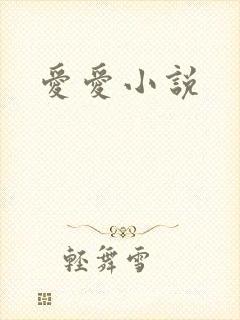 愛愛小說
輕舞雪